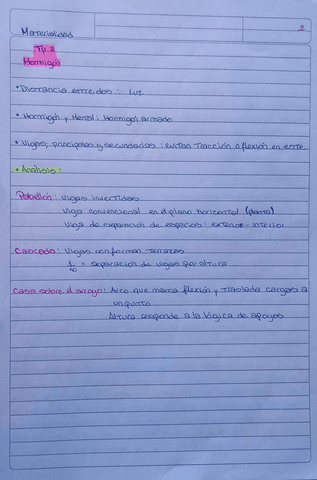 Materialidad
2
Tp 2
Hormigón
• Distancia entre dos : Luz
• Hormigón y Metal: Hormigón armado
• Vigas; principales y secundarias : evitan tracción o flexión en este.
• Análisis:
Pabellón: Vigas invertidas
Viga convencional en el plano horizontal (planta)
Viga de separación de espacios: exterior - interior
Cascada: Vigas conforman terrazas
1/10 = separación de vigas por altura
Casa sobre el arroyo: Arco que marca flexión y traslada cargas a
un punto
Altura responde a la lógica de apoyos